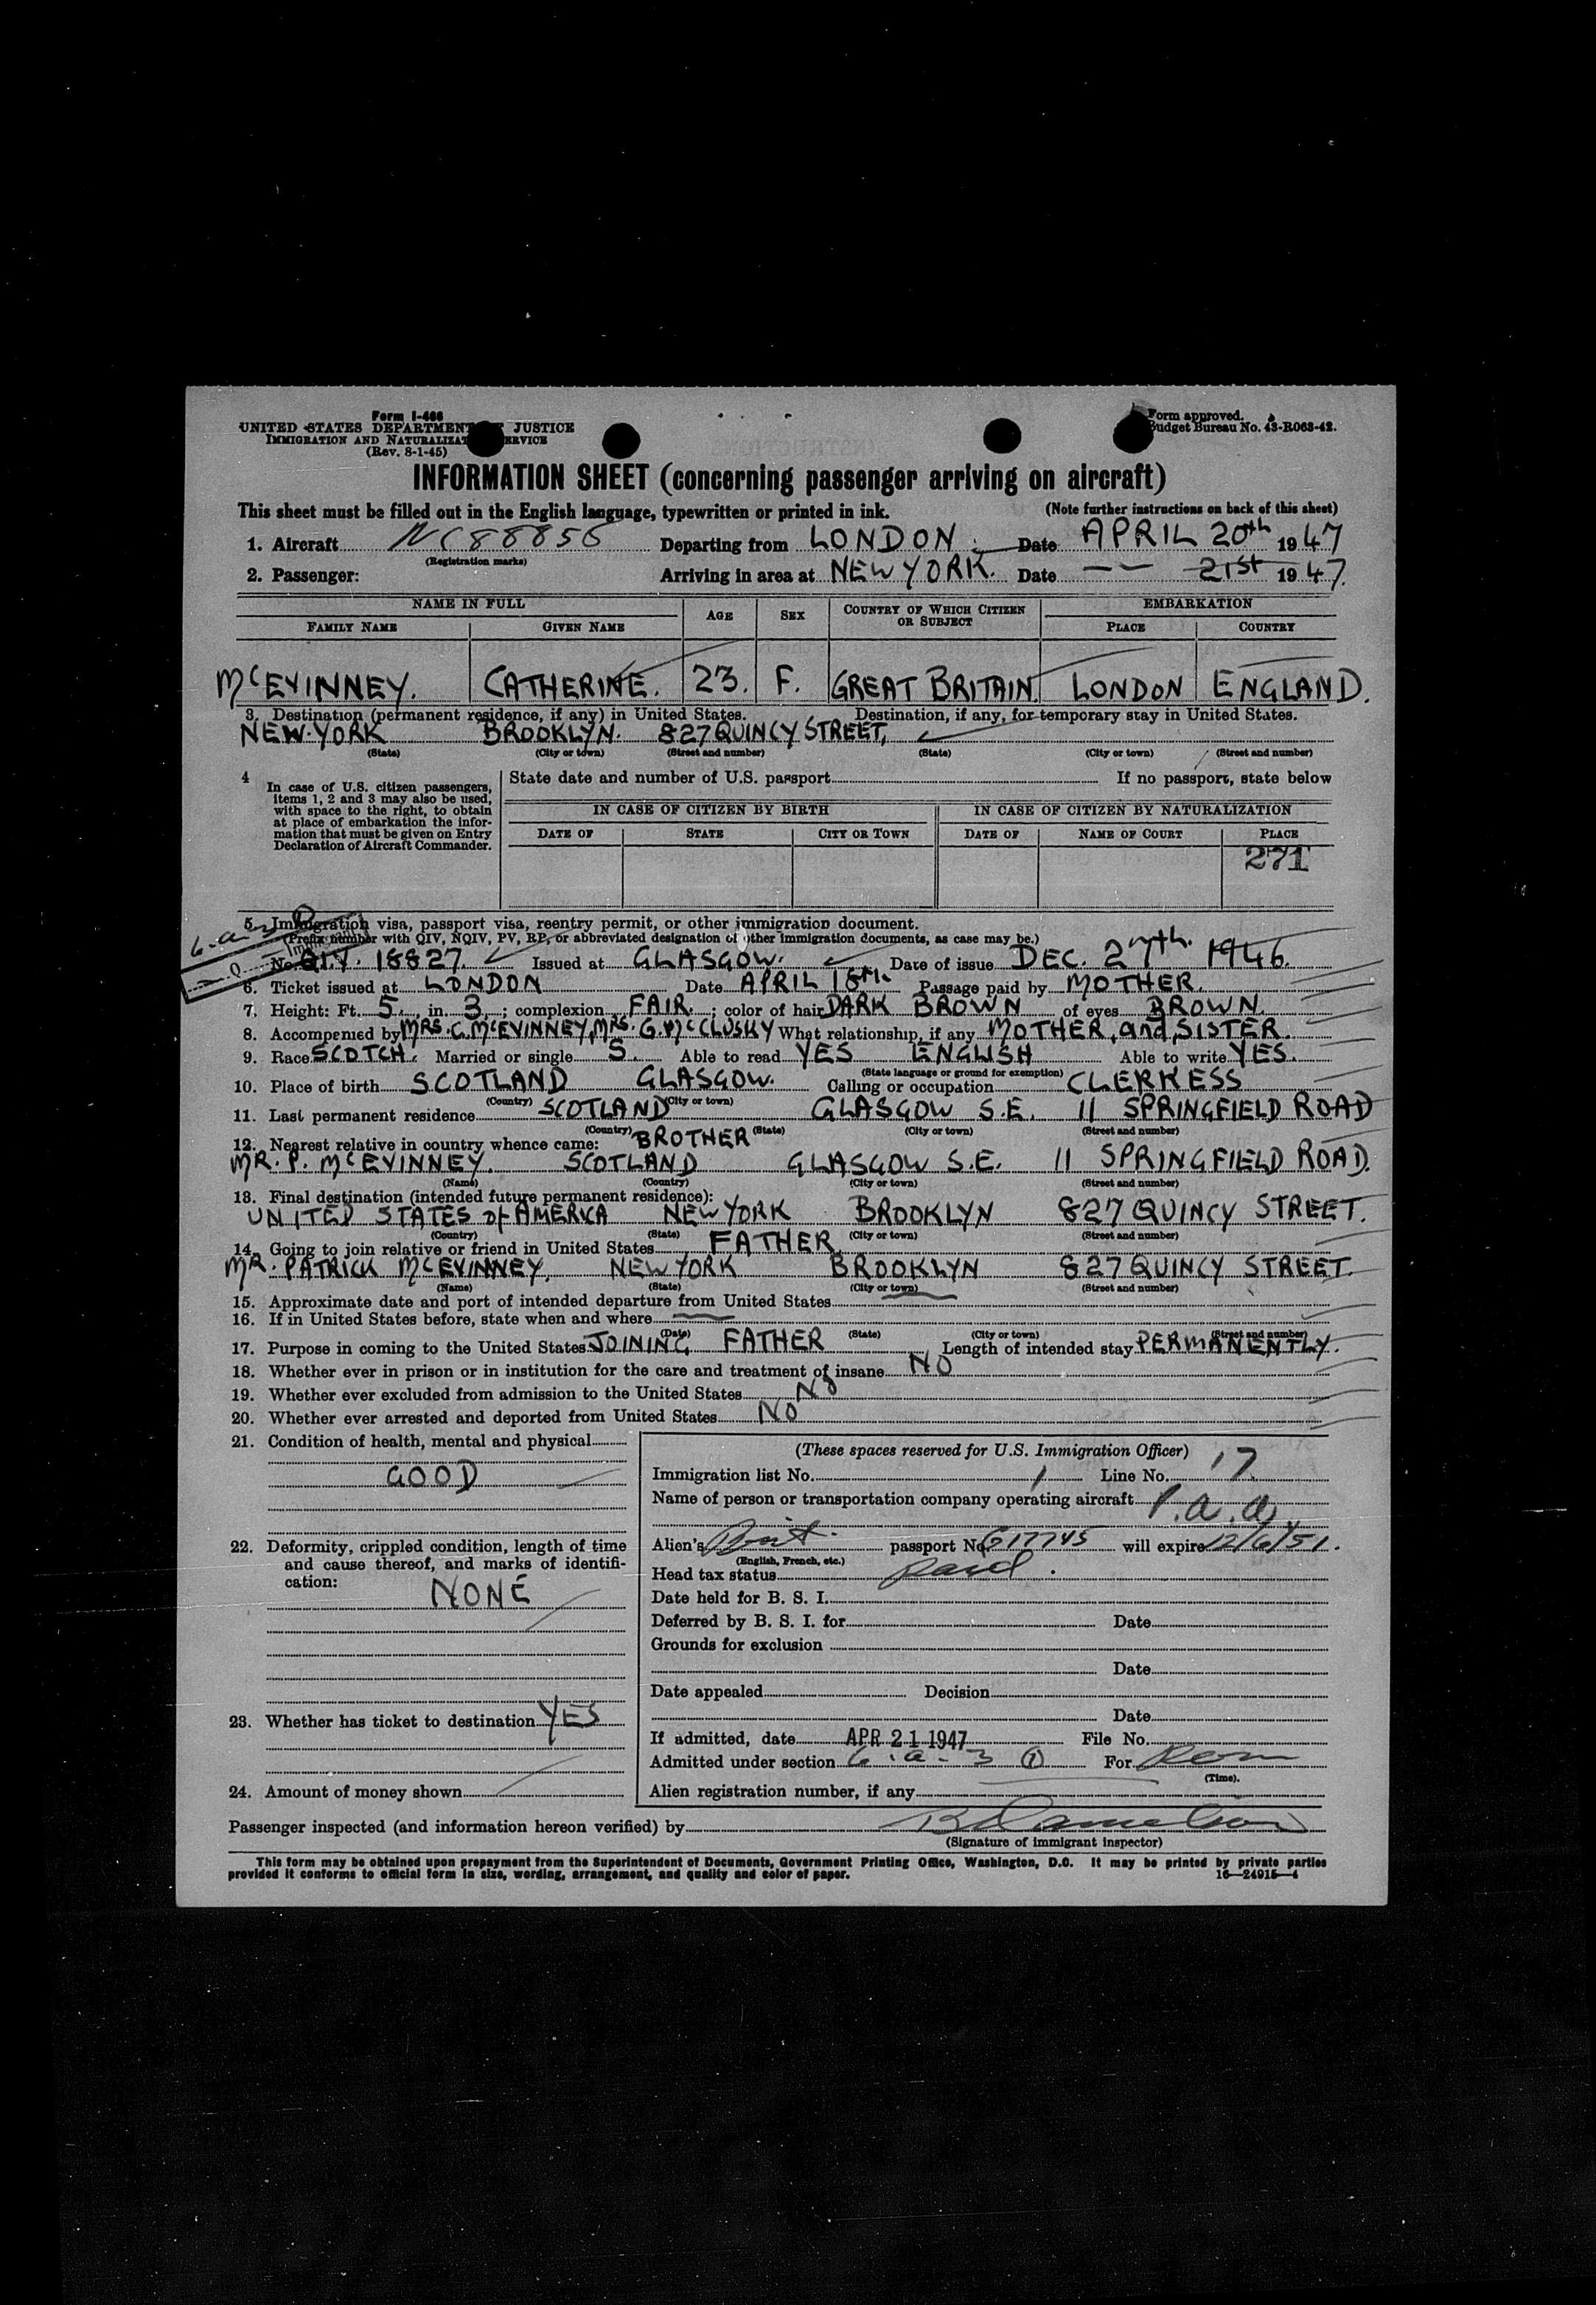 Form I-466
UNITED STATES DEPARTMENT OF JUSTICE
IMMIGRATION AND NATURALIZATION SERVICE
(Rev. 8-1-45)
Form approved.
Budget Bureau No. 43-R063-42.
INFORMATION SHEET (concerning passenger arriving on aircraft)
This sheet must be filled out in the English language, typewritten or printed in ink. (Note further instructions on back of this sheet)
1. Aircraft NC88856 Departing from LONDON. Date APRIL 20th 1947
(Registration marks)
2. Passenger: Arriving in area at NEW YORK. Date —— 21st 1947.
NAME IN FULL AGE SEX COUNTRY OF WHICH CITIZEN OR SUBJECT EMBARKATION
FAMILY NAME GIVEN NAME PLACE COUNTRY
McEVINNEY. CATHERINE. 23. F. GREAT BRITAIN. LONDON ENGLAND.
3. Destination (permanent residence, if any) in United States. Destination, if any, for temporary stay in United States.
NEW-YORK BROOKLYN. 827 QUINCY STREET,
(State) (City or town) (Street and number) (State) (City or town) (Street and number)
4 In case of U.S. citizen passengers, items 1, 2 and 3 may also be used, with space to the right, to obtain at place of embarkation the information that must be given on Entry Declaration of Aircraft Commander.
State date and number of U.S. passport If no passport, state below
IN CASE OF CITIZEN BY BIRTH IN CASE OF CITIZEN BY NATURALIZATION
DATE OF STATE CITY OR TOWN DATE OF NAME OF COURT PLACE
271
5. Immigration visa, passport visa, reentry permit, or other immigration document.
(Prefix number with QIV, NQIV, PV, RP, or abbreviated designation of other immigration documents, as case may be.)
6-a-3
No. Q.I.V. 18827. Issued at GLASGOW. Date of issue DEC. 27th. 1946.
6. Ticket issued at LONDON Date APRIL 18th Passage paid by MOTHER.
7. Height: Ft. 5, in. 3; complexion FAIR; color of hair DARK BROWN of eyes BROWN.
8. Accompanied by MRS. C. McEVINNEY, MRS. G. McCLUSKY What relationship, if any MOTHER, and SISTER.
9. Race SCOTCH. Married or single S. Able to read YES ENGLISH Able to write YES.
(State language or ground for exemption)
10. Place of birth SCOTLAND GLASGOW. Calling or occupation CLERKESS
(Country) (City or town)
11. Last permanent residence SCOTLAND GLASGOW S.E. 11 SPRINGFIELD ROAD
(Country) (State) (City or town) (Street and number)
12. Nearest relative in country whence came: BROTHER
MR. P. McEVINNEY. SCOTLAND GLASGOW S.E. 11 SPRINGFIELD ROAD.
(Name) (Country) (City or town) (Street and number)
13. Final destination (intended future permanent residence):
UNITED STATES of AMERICA NEW YORK BROOKLYN 827 QUINCY STREET.
(Country) (State) (City or town) (Street and number)
14. Going to join relative or friend in United States FATHER.
MR. PATRICK McEVINNEY, NEW YORK BROOKLYN 827 QUINCY STREET.
(Name) (State) (City or town) (Street and number)
15. Approximate date and port of intended departure from United States
16. If in United States before, state when and where
(Date) (State) (City or town) (Street and number)
17. Purpose in coming to the United States JOINING FATHER Length of intended stay PERMANENTLY.
18. Whether ever in prison or in institution for the care and treatment of insane NO
19. Whether ever excluded from admission to the United States NO
20. Whether ever arrested and deported from United States NO
21. Condition of health, mental and physical
GOOD
22. Deformity, crippled condition, length of time and cause thereof, and marks of identification:
NONE
23. Whether has ticket to destination YES
24. Amount of money shown
(These spaces reserved for U.S. Immigration Officer)
Immigration list No. 1 Line No. 17
Name of person or transportation company operating aircraft P.a.a.
Alien's Brit. passport No. 617745 will expire 12/6/51.
(English, French, etc.)
Head tax status paid.
Date held for B. S. I.
Deferred by B. S. I. for Date
Grounds for exclusion
Date
Date appealed Decision
Date
If admitted, date APR 21 1947 File No.
Admitted under section 6-a-3 (1) For Perm
(Time).
Alien registration number, if any
Passenger inspected (and information hereon verified) by
(Signature of immigrant inspector)
This form may be obtained upon prepayment from the Superintendent of Documents, Government Printing Office, Washington, D.C. It may be printed by private parties
provided it conforms to official form in size, wording, arrangement, and quality and color of paper. 16—24915-4